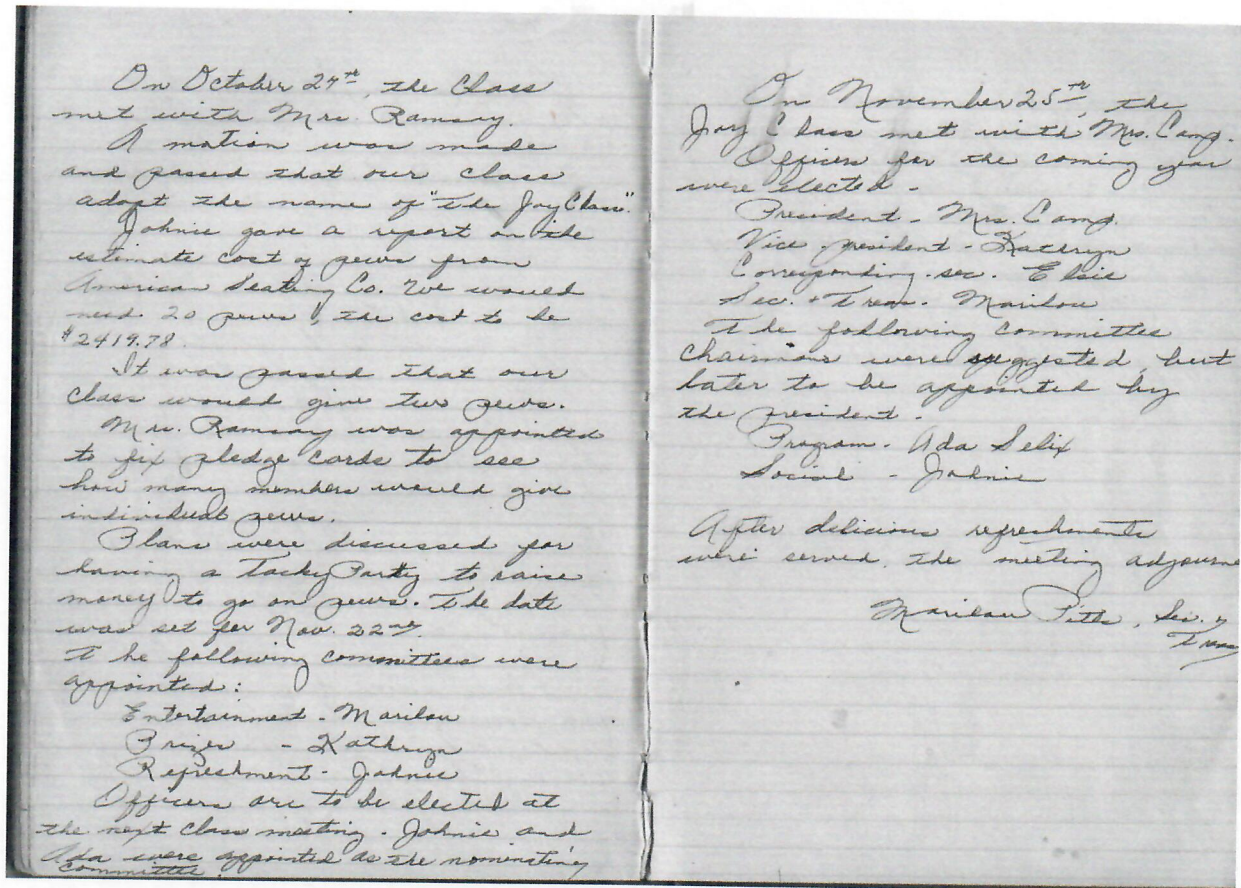 On October 24th, the Class
met with Mrs. Ramsay.
A motion was made
and passed that our class
adopt the name of "The Joy Class".
Johnie gave a report on the
estimate cost of pews from
American Seating Co. We would
need 20 pews, the cost to be
$2419.78.
It was passed that our
class would give two pews.
Mrs. Ramsay was appointed
to fix pledge cards to see
how many members would give
individual pews.
Plans were discussed for
having a Tacky Party to raise
money to go on pews. The date
was set for Nov. 22nd.
The following committees were
appointed:
Entertainment - Marilou
Prizes - Kathryn
Refreshment - Johnie
Officers are to be elected at
the next class meeting. Johnie and
Ada were appointed as the nominating
committee.
On November 25th, the
Joy Class met with Mrs. Camp.
Officers for the coming year
were elected -
President - Mrs. Camp.
Vice-president - Kathryn
Corresponding-sec. Elsie
Sec. & Treas. Marilou
The following committee
chairman were suggested, but
later to be appointed by
the president.
Program - Ada Selix
Social - Johnie
After delicious refreshments
were served, the meeting adjourne
Marilou Pitts, Sec. &
Treas